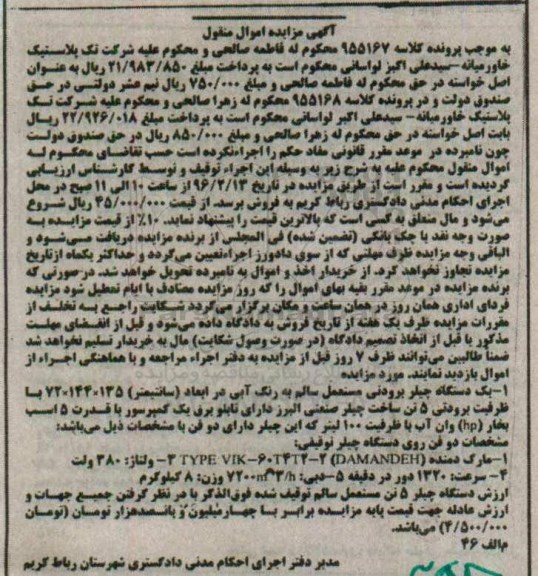 آگهی مزایده اموال منقول
به موجب پرونده کلاسه ۹۵۵۱۶۷ محکوم له فاطمه صالحی و محکوم علیه شرکت تک پلاستیک
خاورمیانه-سیدعلی اکبر لواسانی محکوم است به پرداخت مبلغ ۲۱/۹۸۳/۸۵۰ ریال به عنوان
اصل خواسته در حق محکوم له فاطمه صالحی و مبلغ ۷۵۰/۰۰۰ ریال نیم عشر دولتی در حق
صندوق دولت و در پرونده کلاسه ۹۵۵۱۶۸ محکوم له زهرا صالحی و محکوم علیه شرکت تک
پلاستیک خاورمیانه- سیدعلی اکبر لواسانی محکوم است به پرداخت مبلغ ۲۲/۹۲۶/۰۱۸ ریال
بابت اصل خواسته در حق محکوم له زهرا صالحی و مبلغ ۸۵۰/۰۰۰ ریال در حق صندوق دولت
چون نامبرده در موعد مقرر قانونی مفاد حکم را اجراءنکرده است حسب تقاضای محکوم له
اموال منقول محکوم علیه به شرح زیر به وسیله این اجراء توقیف و توسط کارشناس ارزیابی
گردیده است و مقرر است از طریق مزایده در تاریخ ۹۶/۲/۱۳ از ساعت ۱۰ الی ۱۱ صبح در محل
اجرای احکام مدنی دادگستری رباط کریم به فروش برسد. از قیمت ۴۵/۰۰۰/۰۰۰ ریال شروع
می‌شود و مال متعلق به کسی است که بالاترین قیمت را پیشنهاد نماید. ۱۰٪ از قیمت مزایده به
صورت وجه نقد یا چک بانکی (تضمین شده) فی المجلس از برنده مزایده دریافت می‌شود و
الباقی وجه مزایده ظرف مهلتی که از سوی دادورز اجراءتعیین می‌گردد و حداکثر یکماه ازتاریخ
مزایده تجاوز نخواهد کرد. از خریدار اخذ و اموال به نامبرده تحویل خواهد شد. در-صورتی که
برنده مزایده در موعد مقرر بقیه بهای اموال را که روز مزایده مصادف با ایام تعطیل شود مزایده
فردای اداری همان روز در همان ساعت و مکان برگزار می‌گردد شکایت راجع به تخلف از
مقررات مزایده ظرف یک هفته از تاریخ فروش به دادگاه داده می‌شود و قبل از انقضای مهلت
مذکور یا قبل از اتخاذ تصمیم دادگاه (در صورت وصول شکایت) مال به خریدار تسلیم نخواهد شد
ضمناً طالبین می‌توانند ظرف ۷ روز قبل از مزایده به دفتر اجراء مراجعه و با هماهنگی اجراء از
اموال بازدید نمایند. مورد مزایده
۱-یک دستگاه چیلر برودتی مستعمل سالم به رنگ آبی در ابعاد (سانتیمتر) ۱۳۵×۱۴۴×۷۲ با
ظرفیت برودتی ۵ تن ساخت چیلر صنعتی البرز دارای تابلو برق یک کمپرسور با قدرت ۵ اسب
بخار (hp) وان آب با ظرفیت ۱۰۰ لیتر که این چیلر دارای دو فن با مشخصات ذیل می‌باشد:
مشخصات دو فن روی دستگاه چیلر توقیفی:
۱-مارک دمنده (DAMANDEH) ۲-TYPE VIK-۶۰T۴T۲ ۳- ولتاژ: ۳۸۰ ولت
۴- سرعت: ۱۳۲۰ دور در دقیقه ۵-دبی: ۷۲۰۰m^۳/h وزن: ۸ کیلوگرم
ارزش دستگاه چیلر ۵ تن مستعمل سالم توقیف شده فوق‌الذکر با در نظر گرفتن جمیع جهات و
ارزش عادله جهت قیمت پایه مزایده برابر با چهارمیلیون و پانصدهزار تومان (تومان
۴/۵۰۰/۰۰۰) می‌باشد.
م‌الف ۴۶
مدیر دفتر اجرای احکام مدنی دادگستری شهرستان رباط کریم